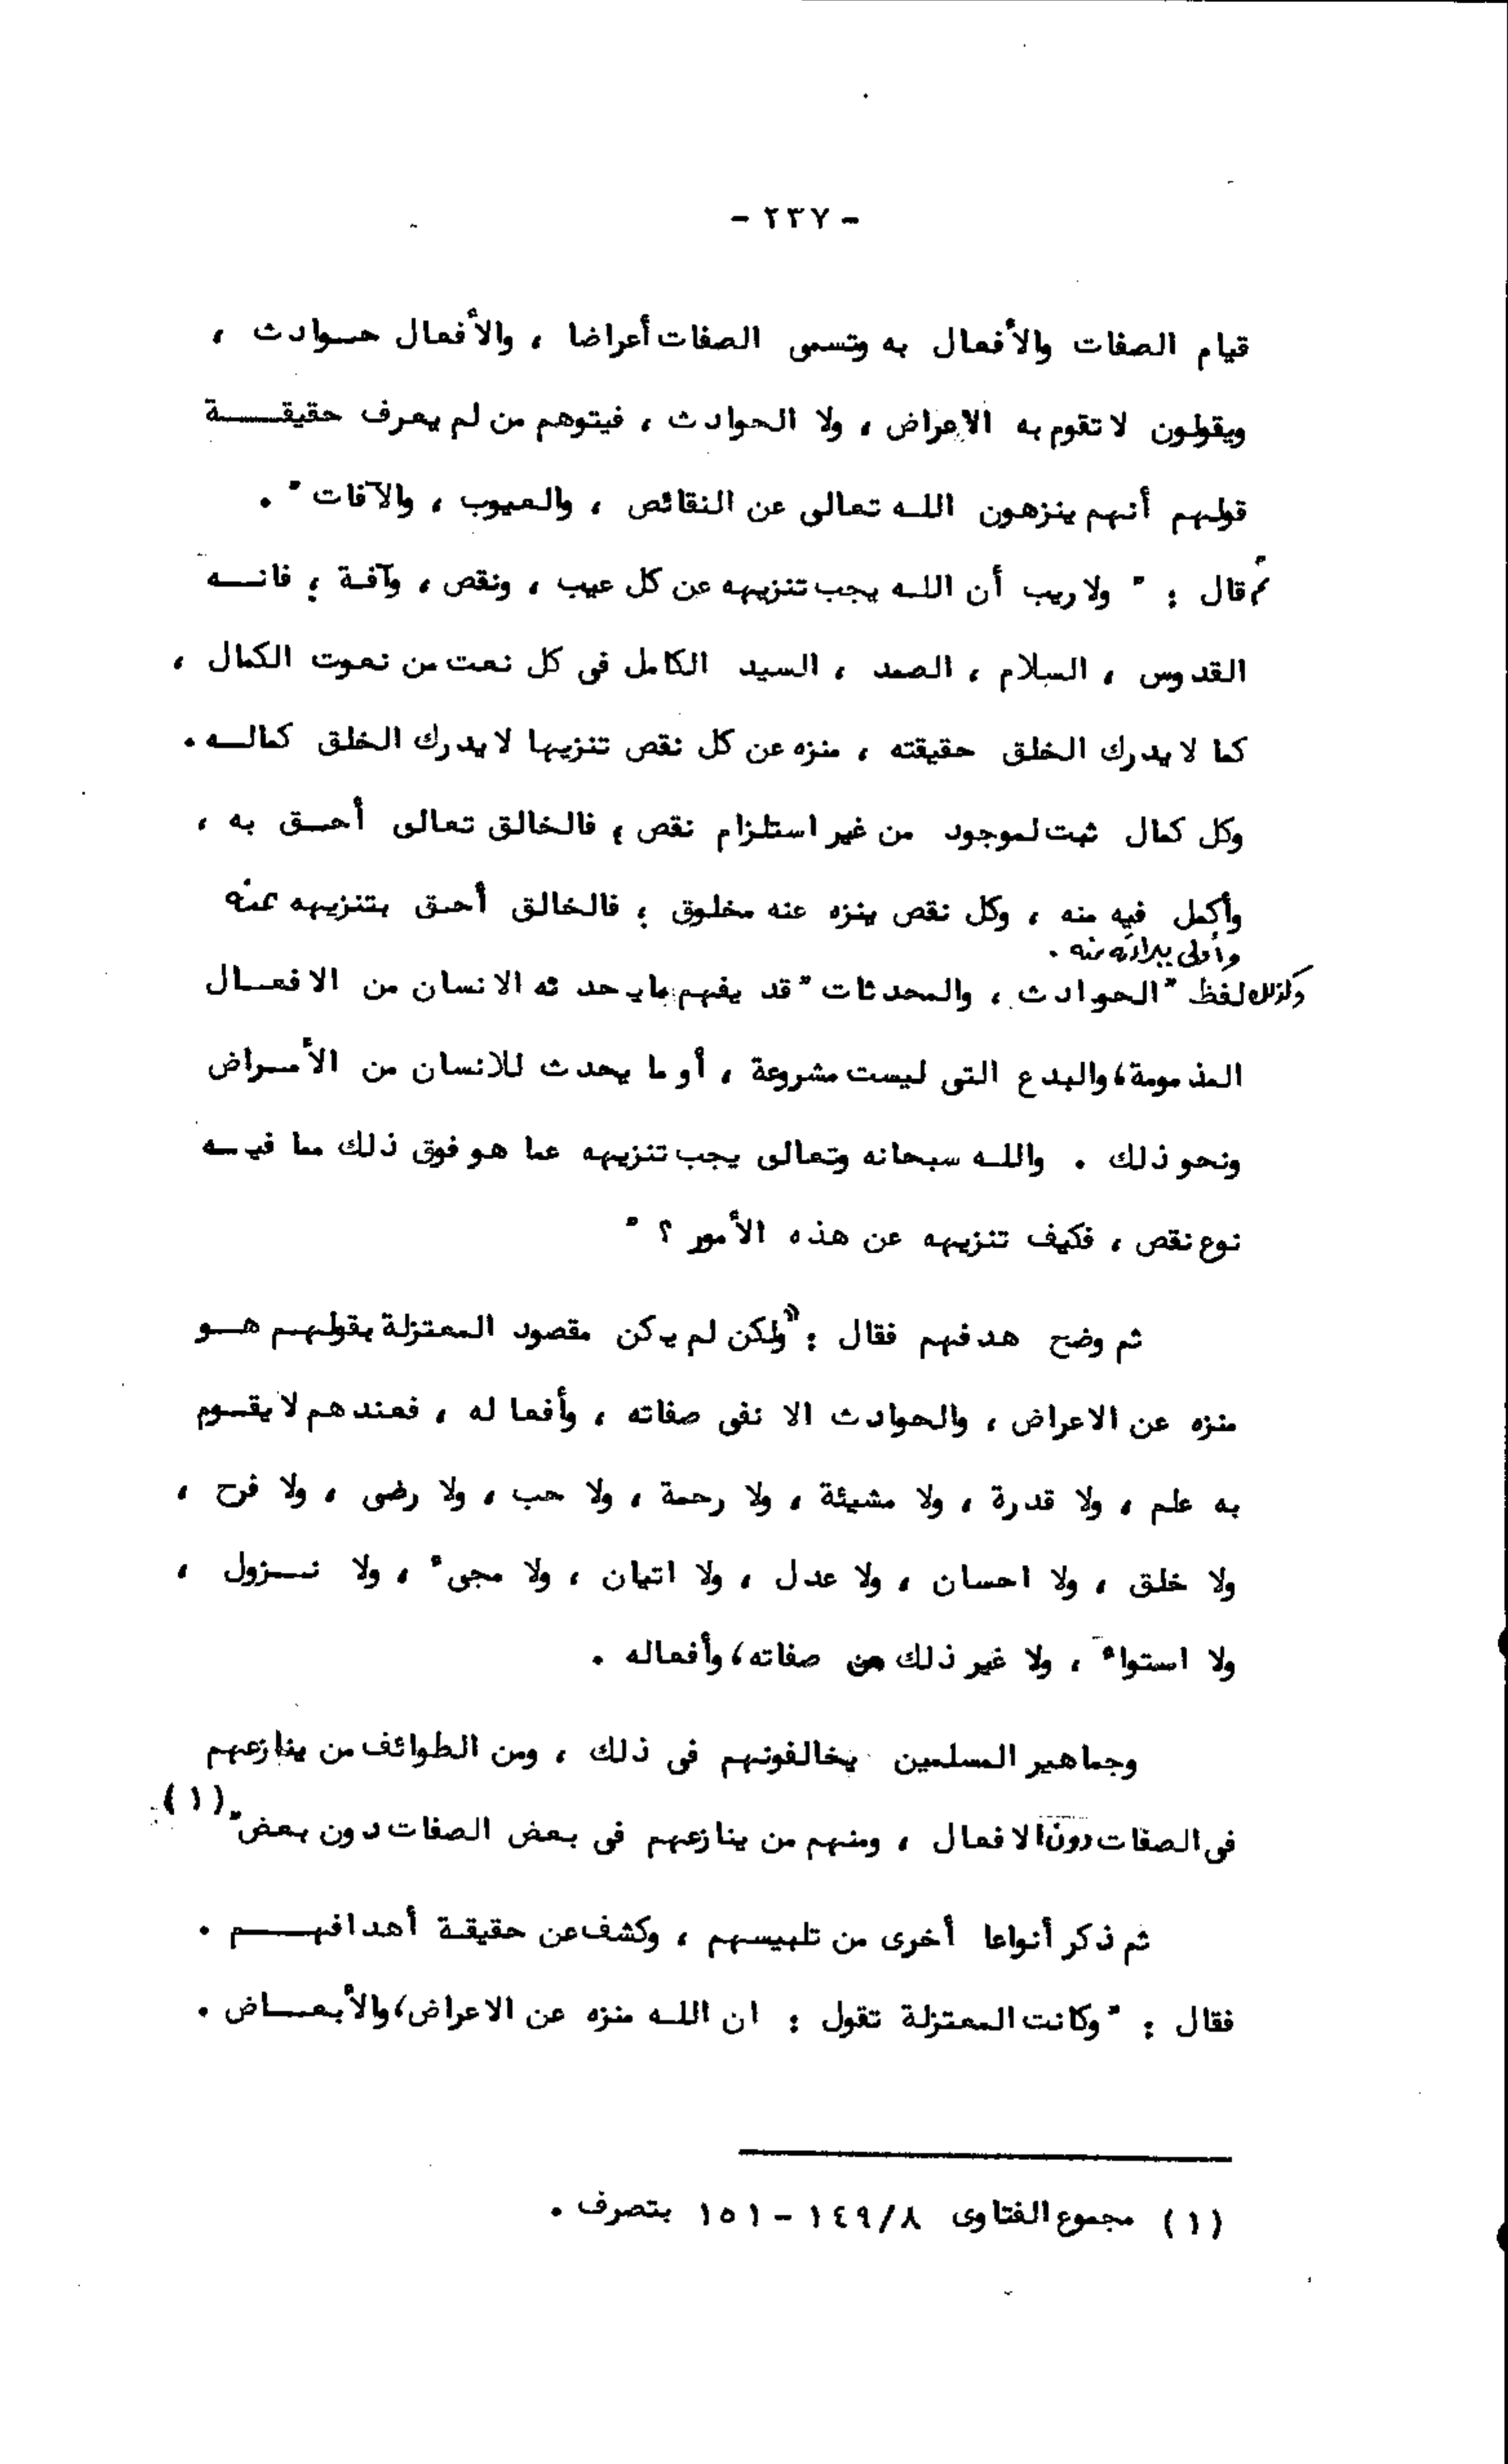 - ٢٣٧ -
قيام الصفات والأفعال به وتسمى الصفات أعراضا ، والأفعال حوادث ،
ويقولون لا تقوم به الاعراض ، ولا الحوادث ، فيتوهم من لم يعرف حقيقة
قولهم أنهم ينزهون الله تعالى عن النقائص ، والعيوب ، والآفات " .
ثم قال : " ولا ريب أن الله يجب تنزيهه عن كل عيب ، ونقص ، وآفة ؛ فانه
القدوس ، السلام ، الصمد ، السيد الكامل فى كل نعت من نعوت الكمال ،
كما لا يدرك الخلق حقيقته ، منزه عن كل نقص تنزيها لا يدرك الخلق كماله .
وكل كمال ثبت لموجود من غير استلزام نقص ؛ فالخالق تعالى أحق به ،
وأكمل فيه منه ، وكل نقص ينزه عنه مخلوق ؛ فالخالق أحق بتنزيهه عنه
وأولى ببراءته منه .
وكذلك لفظ " الحوادث ، والمحدثات " قد يفهم ما يحدثه الانسان من الافعال
المذمومة ، والبدع التى ليست مشروعة ، أو ما يحدث للانسان من الأمراض
ونحو ذلك . والله سبحانه وتعالى يجب تنزيهه عما هو فوق ذلك مما فيه
نوع نقص ، فكيف تنزيهه عن هذه الأمور ؟ "
ثم وضح هدفهم فقال : " ولكن لم يكن مقصود المعتزلة بقولهم هو
منزه عن الاعراض ، والحوادث الا نفى صفاته ، وأفعاله ، فعندهم لا يقوم
به علم ، ولا قدرة ، ولا مشيئة ، ولا رحمة ، ولا حب ، ولا رضى ، ولا فرح ،
ولا خلق ، ولا احسان ، ولا عدل ، ولا اتيان ، ولا مجىء ، ولا نزول ،
ولا استواء ، ولا غير ذلك من صفاته ، وأفعاله .
وجماهير المسلمين يخالفونهم فى ذلك ، ومن الطوائف من ينازعهم
فى الصفات دون الافعال ، ومنهم من ينازعهم فى بعض الصفات دون بعض " (١)
ثم ذكر أنواعا أخرى من تلبيسهم ، وكشف عن حقيقة أهدافهم .
فقال : " وكانت المعتزلة تقول : ان الله منزه عن الاعراض ، والأبعاض .
(١) مجموع الفتاوى ١٤٩/٨ - ١٥١ بتصرف .